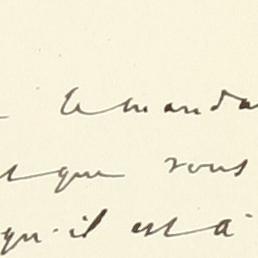 demanda
que vous
qu'il est à